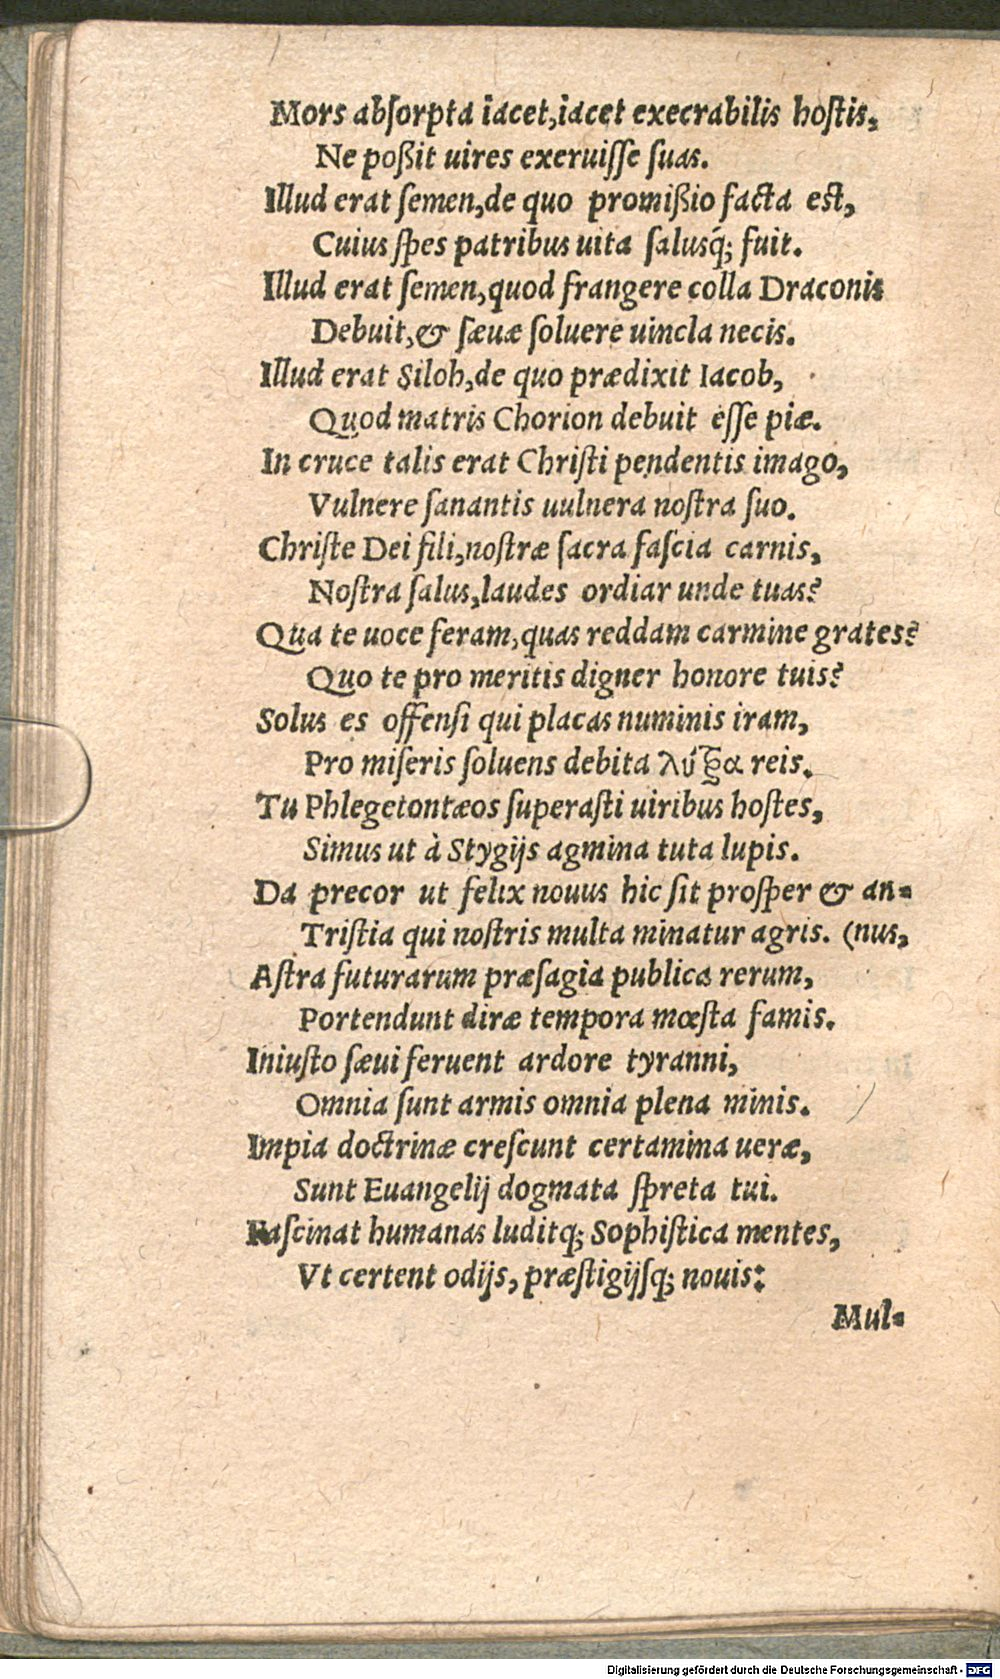 Mors abſorpta iacet,iacet execrabilis hoſtis,
Ne poßit uires exeruiſſe ſuas.
Illud erat ſemen,de quo promißio facta eſt,
Cuius ſpes patribus uita ſalusq́; fuit.
Illud erat ſemen,quod frangere colla Draconis
Debuit,& ſæuæ ſoluere uincla necis.
Illud erat Siloh,de quo prædixit Iacob,
Quod matris Chorion debuit eſſe piæ.
In cruce talis erat Chriſti pendentis imago,
Vulnere ſanantis uulnera noſtra ſuo.
Chriſte Dei fili,noſtræ ſacra faſcia carnis,
Noſtra ſalus,laudes ordiar unde tuas?
Qua te uoce feram,quas reddam carmine grates?
Quo te pro meritis digner honore tuis?
Solus es offenſi qui placas numinis iram,
Pro miſeris ſoluens debita λύτρα reis.
Tu Phlegetontæos ſuperaſti uiribus hoſtes,
Simus ut à Stygijs agmina tuta lupis.
Da precor ut felix nouus hic ſit proſper & an-
Triſtia qui noſtris multa minatur agris. (nus,
Aſtra futurarum præſagia publica rerum,
Portendunt diræ tempora mœſta famis.
Iniuſto ſæui feruent ardore tyranni,
Omnia ſunt armis omnia plena minis.
Impia doctrinæ creſcunt certamina ueræ,
Sunt Euangelij dogmata ſpreta tui.
Faſcinat humanas luditq; Sophiſtica mentes,
Vt certent odijs, præſtigijſq; nouis:
Mul-
Digitalisierung gefördert durch die Deutsche Forschungsgemeinschaft - DFG